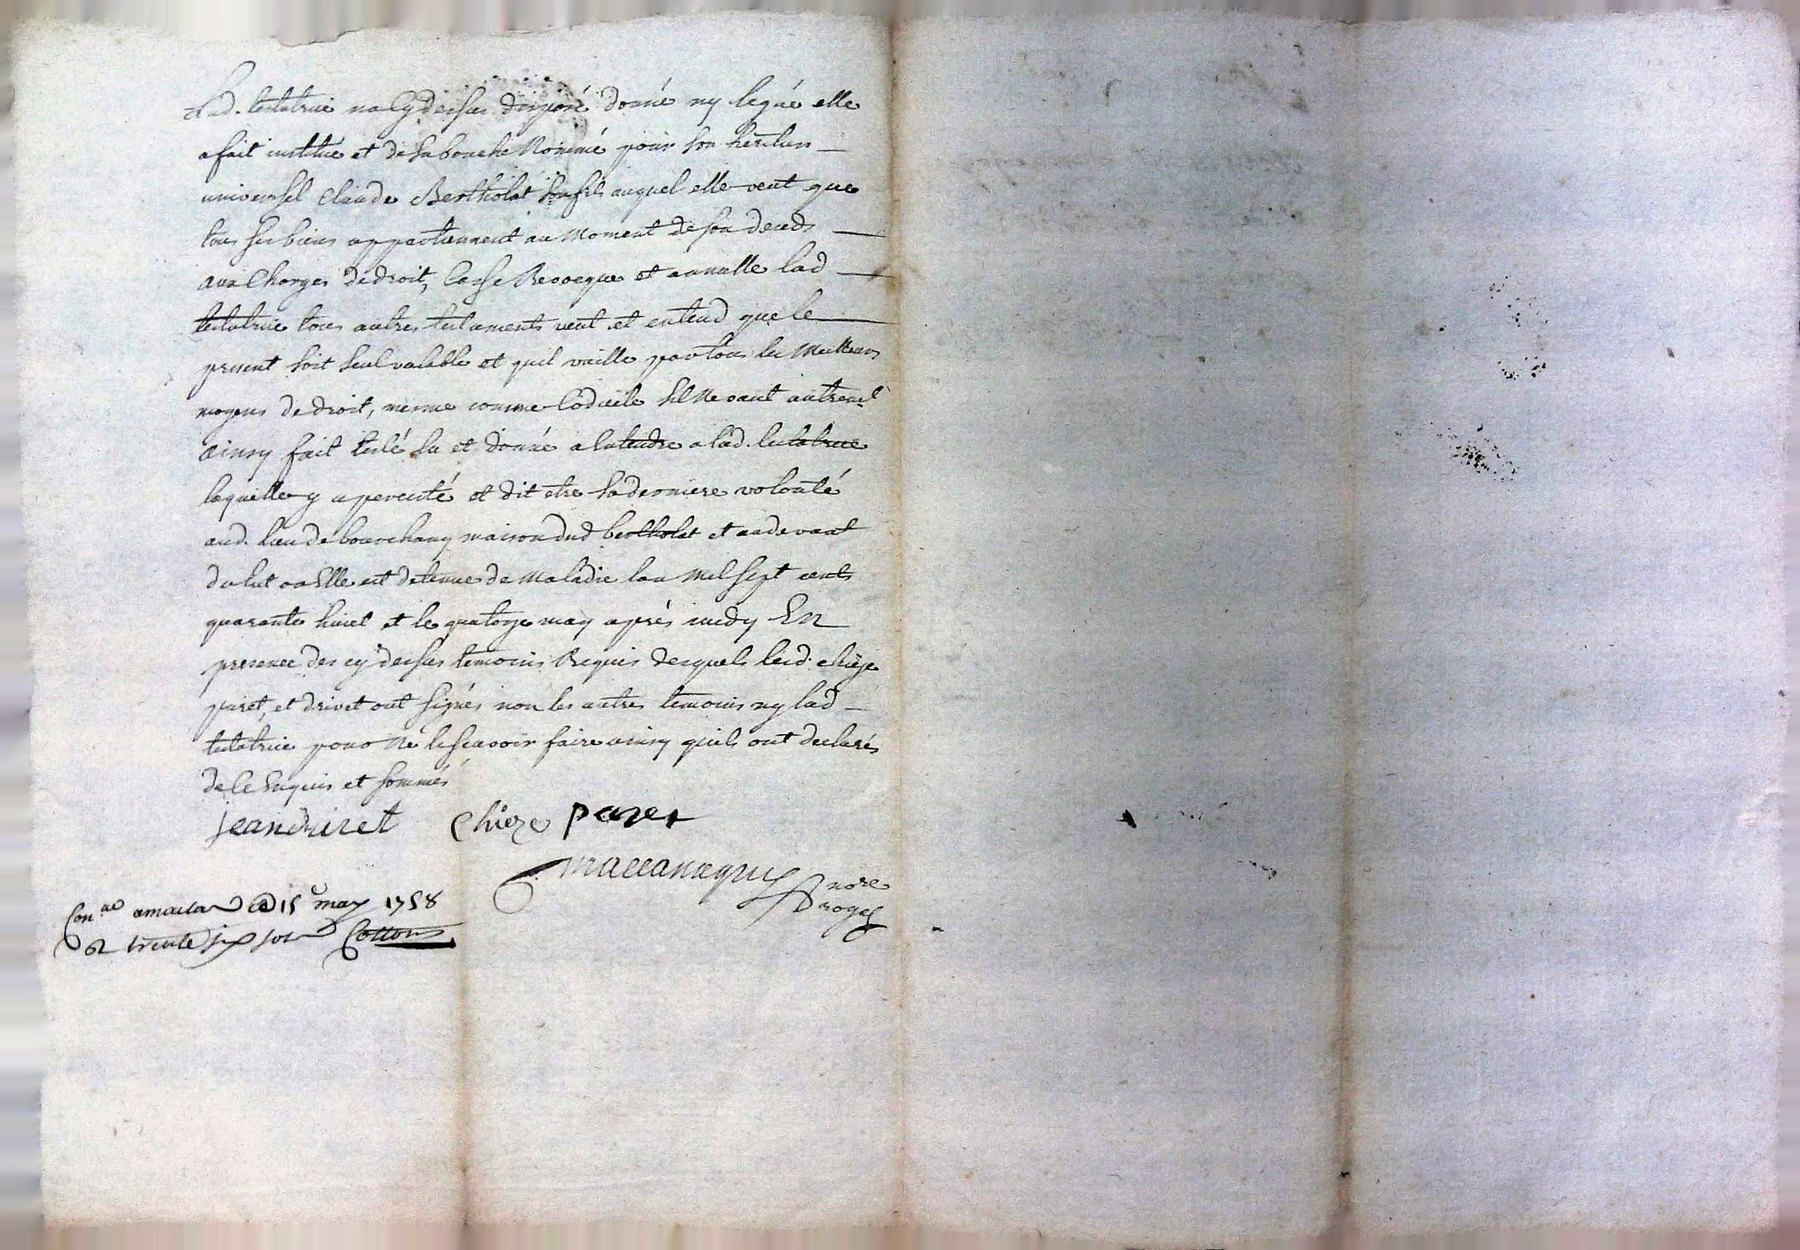 Lad. testatrice na Cy dessus disposé donné ny legué elle
a fait institué et de sa bouche Nommé pour son heritier
universel Claude Bertholat son fils auquel elle veut que
tous ses biens appartiennent au Moment de son deceds
aux Charges de droit, Casse Revocque et annulle lad
testatrice tous autres testaments veut et entend que le
present soit seul valable et quil vaille par tous les Meilleurs
moyens de droit, mesme comme Codicile sil Ne vaut autremt
ainsy fait testé lu et donné a entendre a lad. testatrice
laquelle y a percisté et dit etre sa derniere volonté
aud. lieu de bourchany maison dud bertholat et au devant
du lict ou Elle est detenue de Maladie lan Mil sept cents
quarante huict et le quatorze may aprés midy En
presence des cy dessus temoins Requis desquels lesd. chieze
paret, et drivet ont signés non les autres temoins ny lad
testatrice pour Ne le scavoir faire ainsy quils ont declarés
de ce Enquis et sommés
jean drivet chieze paret
nore
royal
Con.le a 15 may 1758
trente six sols